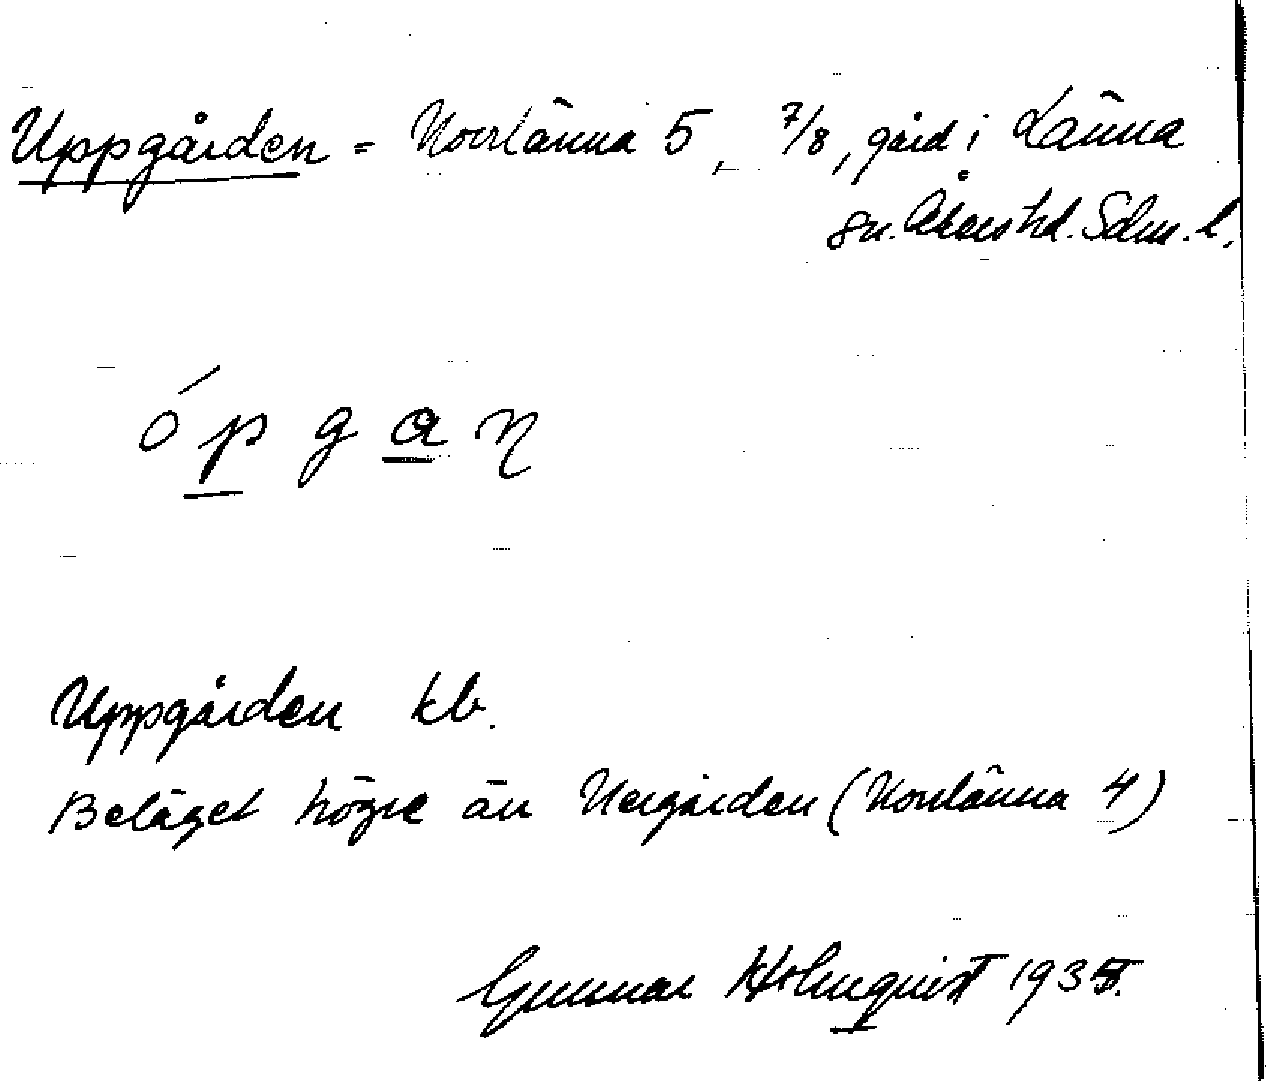 Uppgården = Norrlänna 5, 7/8, gård i Länna
sn. Åkers hd. Sdm. l.
ópgaꞃ
Uppgården kb.
Beläget högre än Nergården (Norrlänna 4)
Gunnar Holmquist 1935.